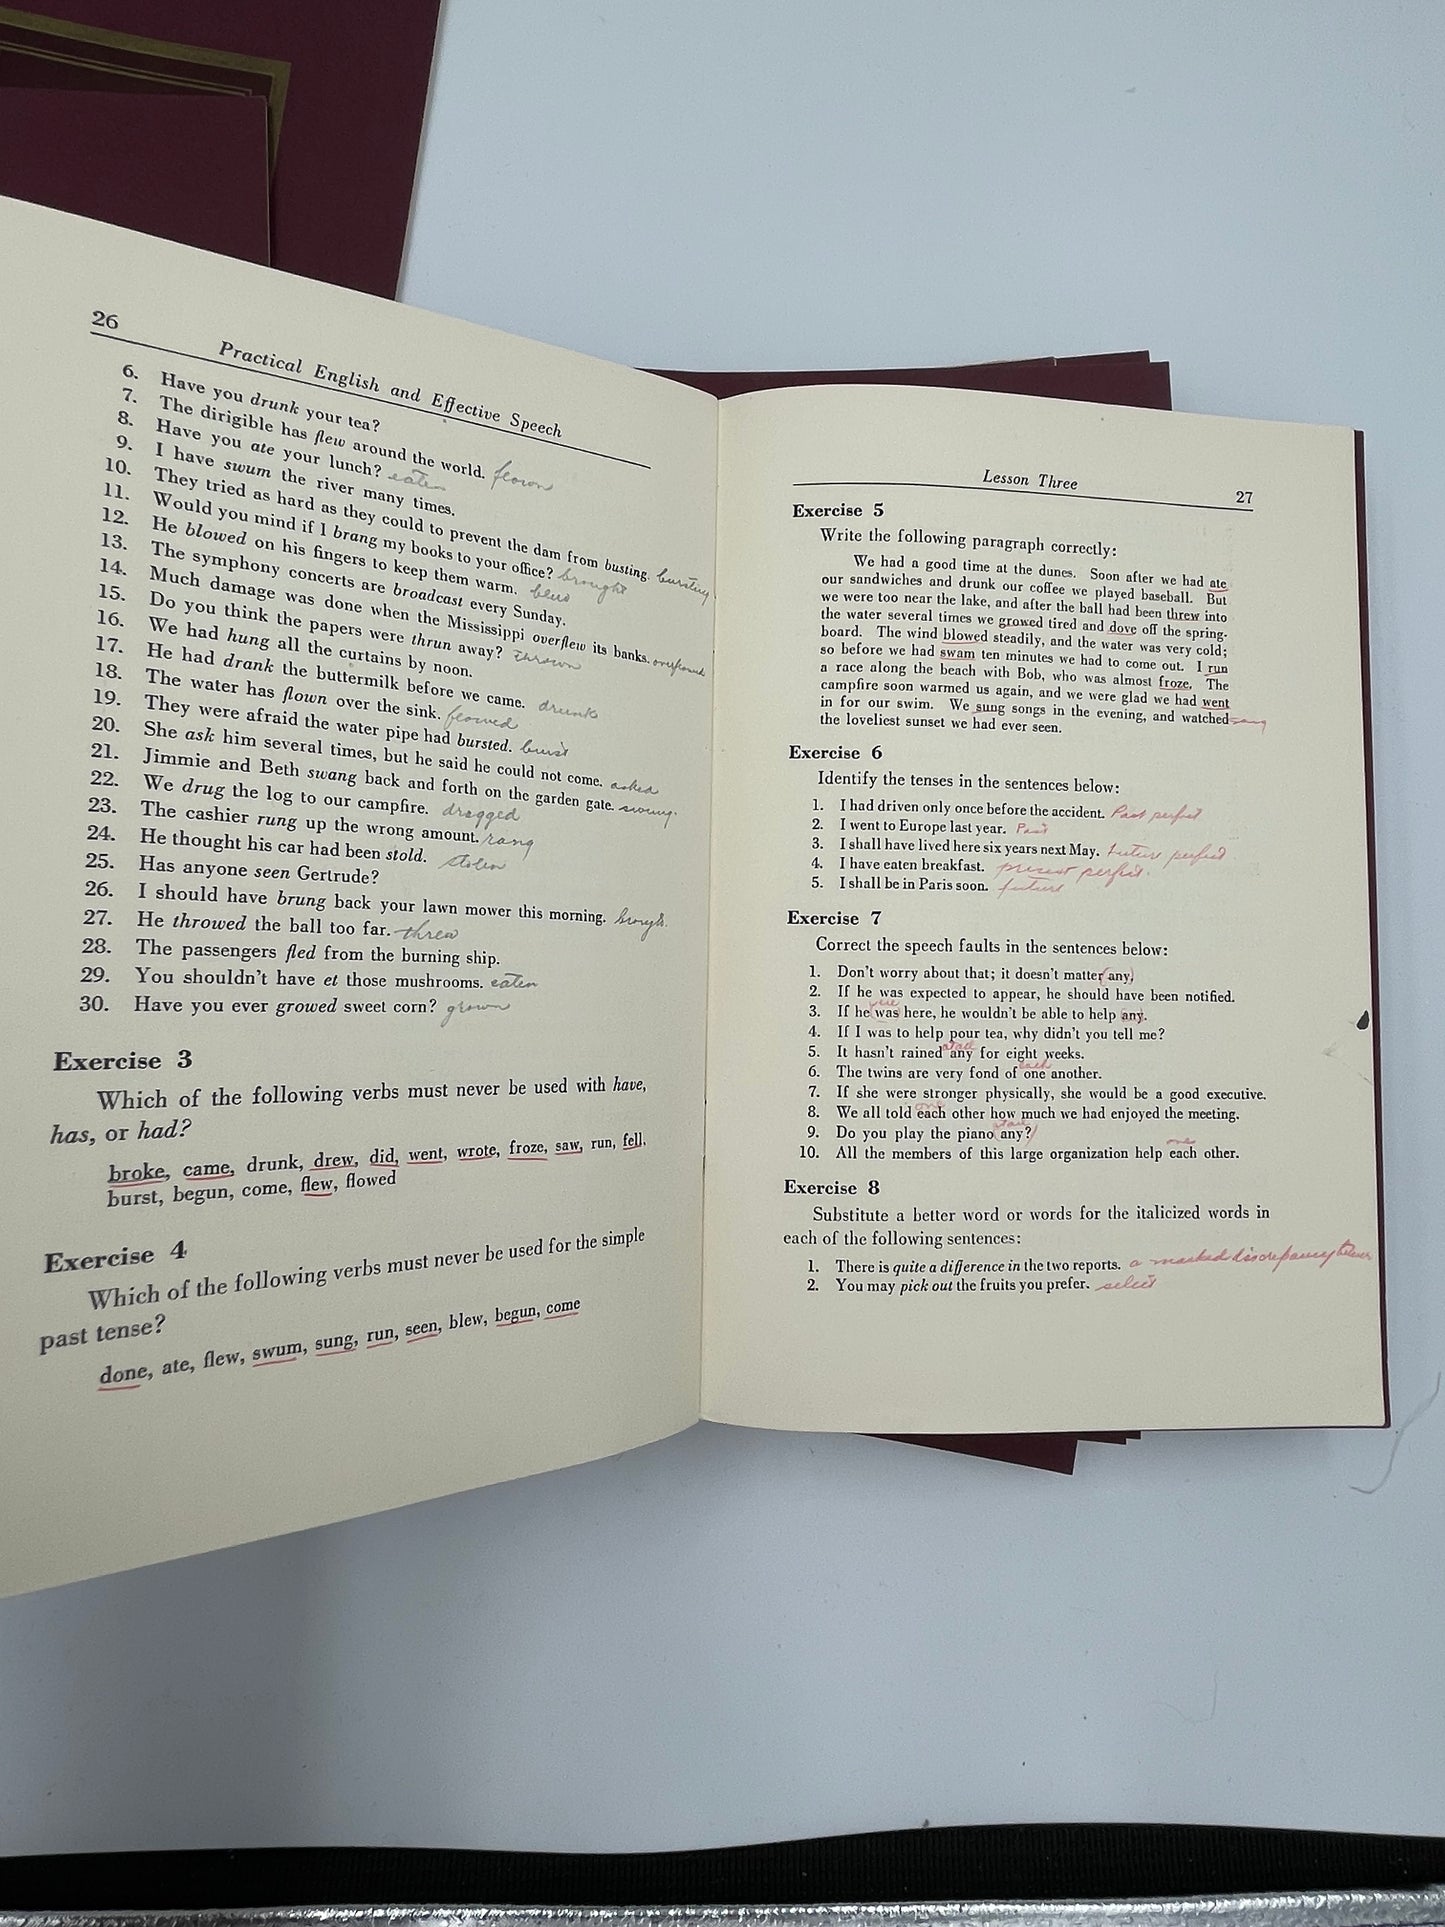 26
Practical English and Effective Speech
6. Have you drunk your tea?
7. The dirigible has flew around the world. flown
8. Have you ate your lunch? eaten
9. I have swum the river many times.
10. They tried as hard as they could to prevent the dam from busting. bursting
11. Would you mind if I brang my books to your office? brought
12. He blowed on his fingers to keep them warm. blew
13. The symphony concerts are broadcast every Sunday.
14. Much damage was done when the Mississippi overflew its banks. overflowed
15. Do you think the papers were thrun away? thrown
16. We had hung all the curtains by noon.
17. He had drank the buttermilk before we came. drunk
18. The water has flown over the sink. flowed
19. They were afraid the water pipe had bursted. burst
20. She ask him several times, but he said he could not come. asked
21. Jimmie and Beth swang back and forth on the garden gate. swung.
22. We drug the log to our campfire. dragged
23. The cashier rung up the wrong amount. rang
24. He thought his car had been stold. stolen
25. Has anyone seen Gertrude?
26. I should have brung back your lawn mower this morning. brought.
27. He throwed the ball too far. threw
28. The passengers fled from the burning ship.
29. You shouldn't have et those mushrooms. eaten
30. Have you ever growed sweet corn? grown
Exercise 3
Which of the following verbs must never be used with have,
has, or had?
broke, came, drunk, drew, did, went, wrote, froze, saw, run, fell,
burst, begun, come, flew, flowed
Exercise 4
Which of the following verbs must never be used for the simple
past tense?
done, ate, flew, swum, sung, run, seen, blew, begun, come
Lesson Three
27
Exercise 5
Write the following paragraph correctly:
We had a good time at the dunes. Soon after we had ate
our sandwiches and drunk our coffee we played baseball. But
we were too near the lake, and after the ball had been threw into
the water several times we growed tired and dove off the spring-
board. The wind blowed steadily, and the water was very cold;
so before we had swam ten minutes we had to come out. I run
a race along the beach with Bob, who was almost froze. The
campfire soon warmed us again, and we were glad we had went
in for our swim. We sung songs in the evening, and watched sang
the loveliest sunset we had ever seen.
Exercise 6
Identify the tenses in the sentences below:
1. I had driven only once before the accident. Past perfect
2. I went to Europe last year. Past
3. I shall have lived here six years next May. Future perfect
4. I have eaten breakfast. present perfect.
5. I shall be in Paris soon. future
Exercise 7
Correct the speech faults in the sentences below:
1. Don't worry about that; it doesn't matter any.
2. If he was expected to appear, he should have been notified.
were
3. If he was here, he wouldn't be able to help any.
4. If I was to help pour tea, why didn't you tell me?
at all
5. It hasn't rained any for eight weeks.
each
6. The twins are very fond of one another.
7. If she were stronger physically, she would be a good executive.
one
8. We all told each other how much we had enjoyed the meeting.
at all
9. Do you play the piano any?
one
10. All the members of this large organization help each other.
Exercise 8
Substitute a better word or words for the italicized words in
each of the following sentences:
1. There is quite a difference in the two reports. a marked discrepancy between
2. You may pick out the fruits you prefer. select